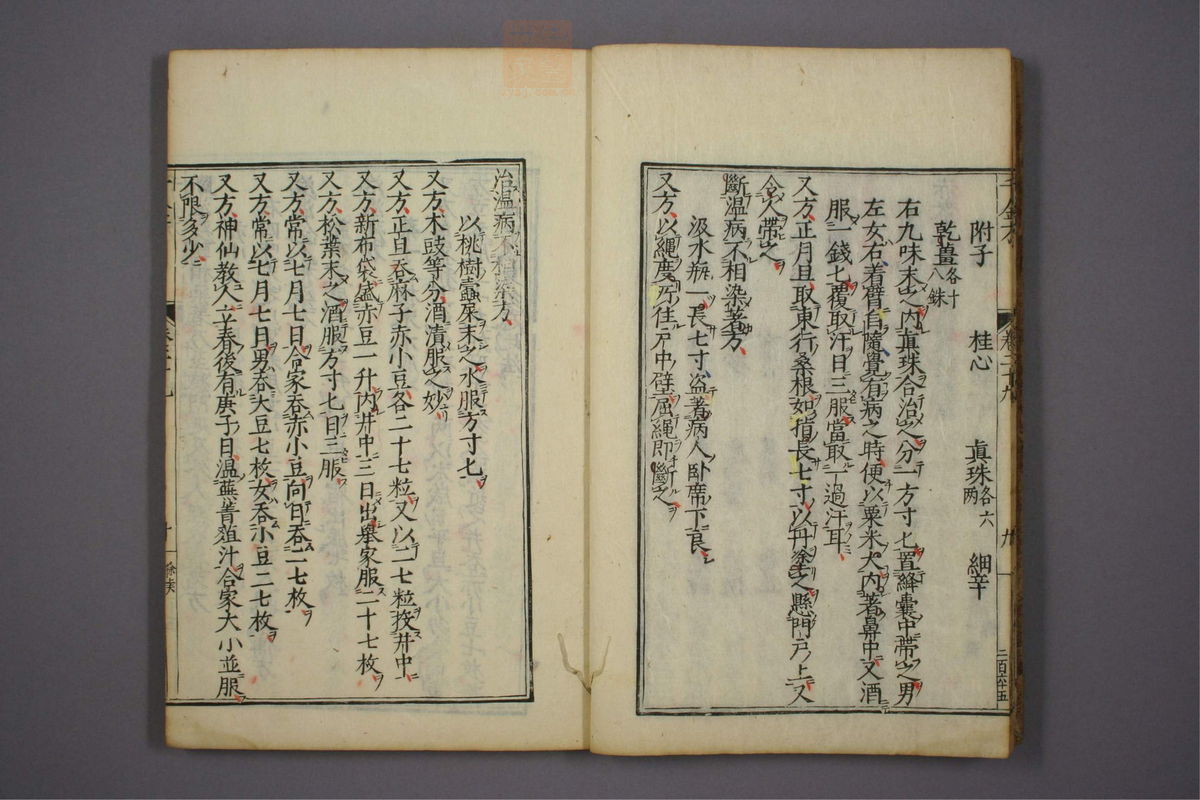 附子　桂心　真珠各六兩　細辛
乾薑各十八銖
右九味末之内真珠合治之分一方寸匕置絳囊中帶之男
左女右着臂自隨覺有病之時便以粟米大内著鼻中又酒
服一錢匕覆取汗日三服當取一過汗耳
又方正月旦取東行桑根如指長七寸以丹塗之懸門戶上又
令人帶之
斷温病不相染著方
汲水瓶一長七寸盗著病人卧席下良
又方以繩度所住戶中壁屈繩即斷之
治温病不相染方
以桃樹蠹屎末之水服方寸匕
又方木豉等分酒漬服之妙
又方正旦吞麻子赤小豆各二十七粒又以二七粒投井中
又方新布袋盛赤豆一升内井中三日出舉家服二十七枚
又方松葉末之酒服方寸匕日三服
又方常以七月七日合家吞赤小豆向日吞二七枚
又方常以七月七日男吞大豆七枚女吞小豆二七枚
又方神仙教人立春後有庚子日温蕪菁葅汁合家大小並服
不限多少